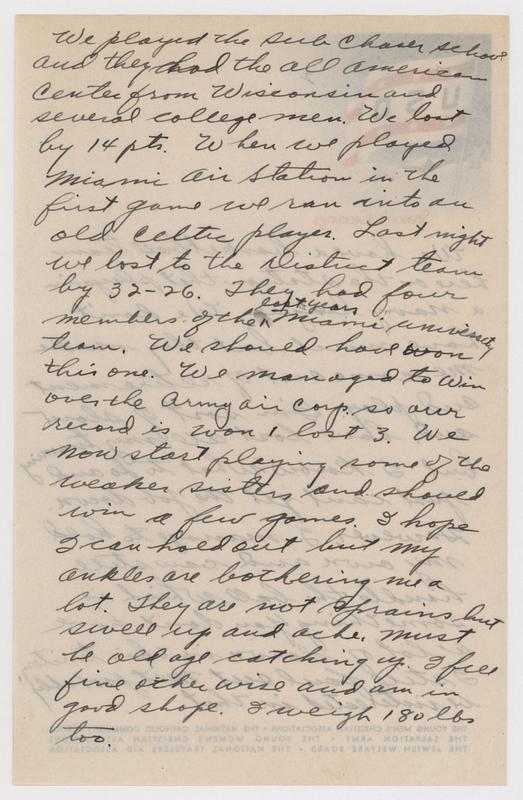 We played the sub chaser school
and they had the all american
center from Wisconsin and
several college men. We lost
by 14 pts. When we played
Miami Air Station in the
first game we ran into an
old Celtic player. Last night
we lost to the District team
by 32-26. They had four
members of the last years Miami University
team. We should have won
this one. We managed to win
over the Army air Corp. so our
record is won 1 lost 3. We
now start playing some of the
weaker sisters and should
win a few games. I hope
I can hold out but my
ankles are bothering me a
lot. They are not sprains but
swell up and ache. Must
be old age catching up. I feel
fine other wise and am in
good shape. I weigh 180 lbs
too.